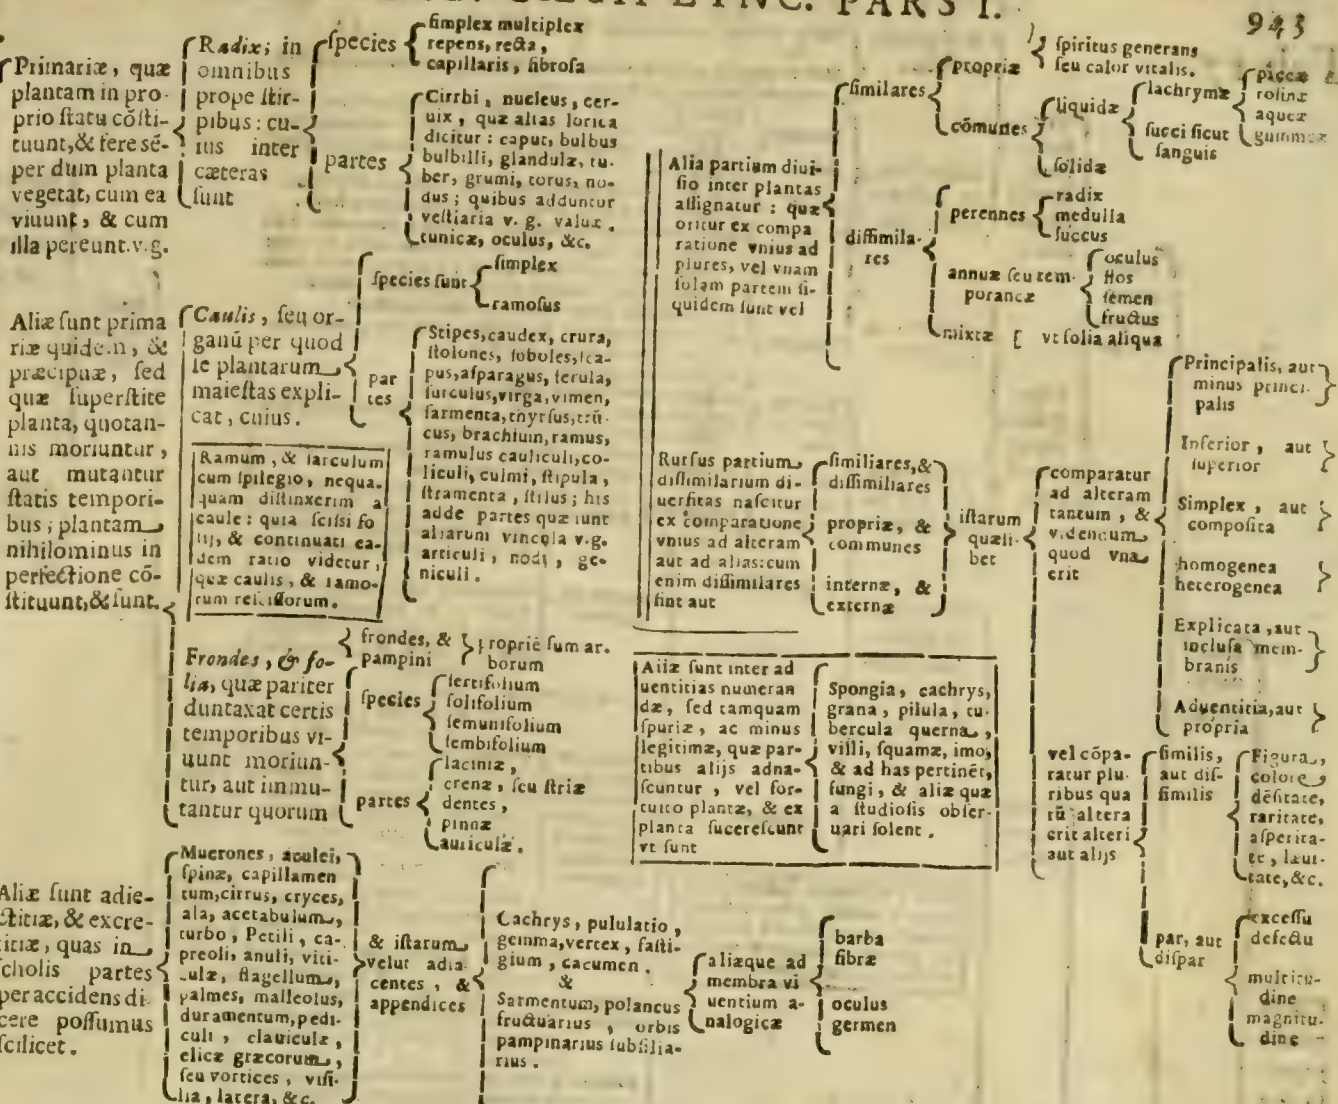 PARS I.
943
Primariæ, quæ
plantam in pro-
prio ſtatu cõſti-
tuunt, & fere sẽ-
per dum planta
vegetat, cum ea
viuunt, & cum
illa pereunt.v.g.
Radix; in
omnibus
prope ſtir-
pibus: cu-
ius inter
cæteras
ſunt
ſpecies
ſimplex multiplex
repens, recta,
capillaris, fibroſa
partes
Cirrhi, nucleus, cer-
uix, quæ alias lorica
dicitur: caput, bulbus
bulbilli, glandulæ, tu-
ber, grumi, torus, no-
dus; quibus adduntur
veſtiaria v. g. valuæ.
tunicæ, oculus, &c.
Aliæ ſunt prima
riæ quidem, &
præcipuæ, ſed
quæ ſuperſtite
planta, quotan-
nis moriuntur,
aut mutantur
ſtatis tempori-
bus; plantam
nihilominus in
perfectione cõ-
ſtituunt, & ſunt.
Caulis, ſeu or-
ganũ per quod
ſe plantarum
maieſtas expli-
cat, cuius.
ſpecies ſunt
ſimplex
ramoſus
par
tes
Stipes, caudex, crura,
ſtolones, ſoboles, ſca-
pus, aſparagus, ferula,
ſurculus, virga, vimen,
ſarmenta, thyrſus, trũ-
cus, brachium, ramus,
ramulus cauliculi, co-
liculi, culmi, ſtipula,
ſtramenta, ſtilus; his
adde partes quæ ſunt
aliarum vincula v.g.
articuli, nodi, ge-
niculi.
Ramum, & ſarculum
cum ſpilegio, nequa-
quam diſtinxerim a
caule: quia ſciſsi fo
lij, & continuati ea-
dem ratio videtur,
quæ caulis, & ramo-
rum reſciſſorum.
Frondes, & fo-
lia, quæ pariter
duntaxat certis
temporibus vi-
uunt moriun-
tur, aut immu-
tantur quorum
frondes, &
pampini
propriè ſum ar.
borum
ſpecies
ſertifolium
ſolifolium
ſemunifolium
ſembifolium
partes
laciniæ,
crenæ, ſeu ſtriæ
dentes,
pinnæ
auriculæ.
Aliæ ſunt adie-
ctitiæ, & excre-
titiæ, quas in
ſcholis partes
per accidens di-
cere poſſumus
ſcilicet.
Mucrones, aculei,
ſpinæ, capillamen
tum, cirrus, cryces,
ala, acetabulum,
turbo, Petili, ca-
preoli, anuli, viti-
culæ, flagellum,
palmes, malleolus,
duramentum, pedi-
culi, clauiculæ,
elicæ græcorum,
ſeu vortices, viſi-
lia, latera, &c.
& iſtarum
velut adia-
centes, &
appendices
Cachrys, pululatio,
gemma, vertex, faſti-
gium, cacumen.
&
Sarmentum, polancus
fructuarius, orbis
pampinarius ſubſilia-
rius.
aliæque ad
membra vi
uentium a-
nalogicæ
barba
fibræ
oculus
germen
Alia partium diui-
ſio inter plantas
aſſignatur: quæ
oritur ex compa
ratione vnius ad
plures, vel vnam
ſolam partem ſi-
quidem ſunt vel
ſimilares
propriæ
ſpiritus generans
ſeu calor vitalis.
cõmunes
liquidæ
lachrymæ
piceæ
roſinæ
aqueæ
gummeæ
ſucci ſicut
ſanguis
ſolidæ
diſſimila-
res
perennes
radix
medulla
ſuccus
annuæ ſeu tem-
poraneæ
oculus
flos
ſemen
fructus
mixtæ [ vt folia aliqua
Rurſus partium
diſſimilarium di-
uerſitas naſcitur
ex comparatione
vnius ad alteram
aut ad alias: cum
enim diſſimilares
ſint aut
ſimiliares, &
diſſimiliares
propriæ, &
communes
internæ, &
externæ
iſtarum
quæli-
bet
comparatur
ad alteram
tantum, &
videndum
quod vna
erit
Principalis, aut
minus princi-
palis
Inferior, aut
ſuperior
Simplex, aut
compoſita
homogenea
heterogenea
Explicata, aut
incluſa mem-
branis
Aduentitia, aut
propria
vel cõpa-
ratur plu-
ribus qua
rũ altera
erit alteri
aut alijs
ſimilis,
aut diſ-
ſimilis
Figura,
colore,
dẽſitate,
raritate,
aſperita-
te, læui-
tate, &c.
par, aut
diſpar
exceſſu
defectu
multitu-
dine
magnitu-
dine
Aliæ ſunt inter ad
uentitias numeran
dæ, ſed tamquam
ſpuriæ, ac minus
legitimæ, quæ par-
tibus alijs adna-
ſcuntur, vel for-
tuito plantæ, & ex
planta ſucereſcunt
vt ſunt
Spongia, cachrys,
grana, pilula, tu-
bercula querna,
villi, ſquamæ, imo,
& ad has pertinẽt,
fungi, & aliæ quæ
a ſtudioſis obſer-
uari ſolent.